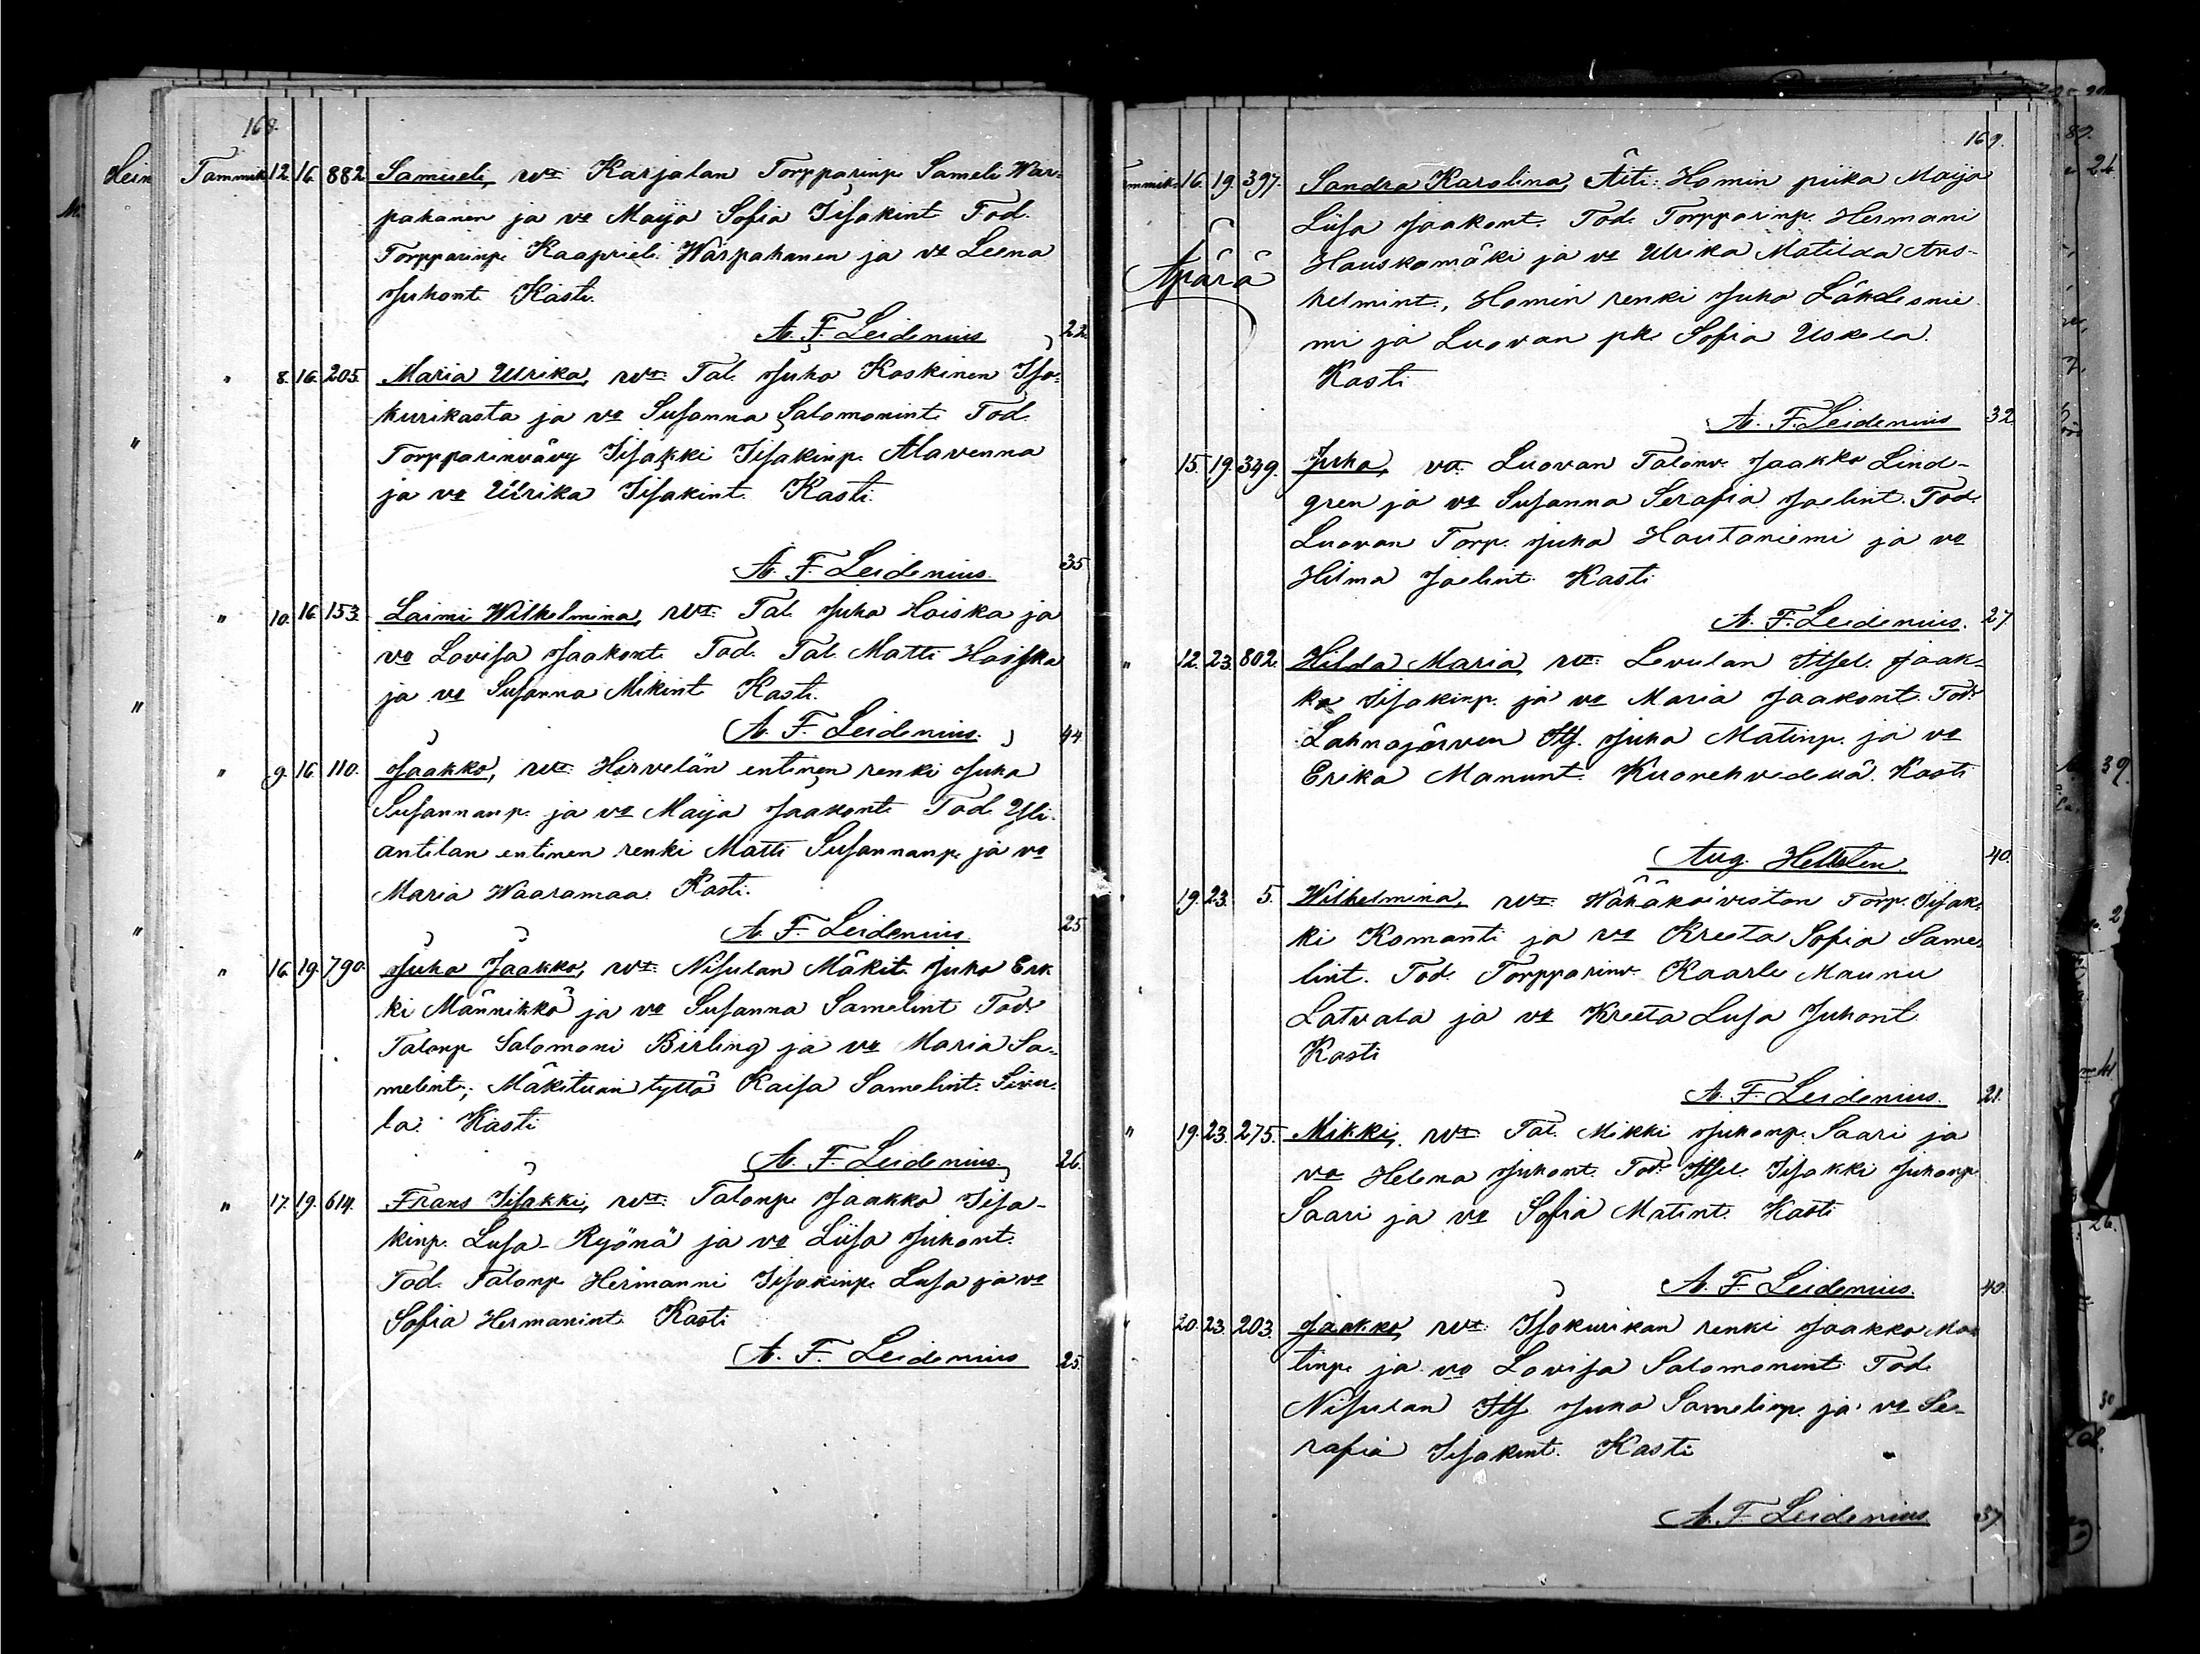 168.
Tammik. 12. 16. 882. Samueli, vt: Karjalan Torpparinp. Sameli War-
pahanen ja vo Maija Sofia Iisakint. Tod.
Torpparinp. Kaaprieli Warpahanen ja vo Leena
Juhont. Kasti.
A. F. Leidenius 22.
" 8. 16. 205. Maria Ulrika, vt: Tal. Juho Koskinen Iso-
kurikasta ja vo Susanna Salomonint. Tod.
Torpparinvävy Iisakki Iisakinp. Alavenna
ja vo Ulrika Iisakint. Kasti.
A. F. Leidenius. 35
" 10. 16. 153. Laimi Wilhelmina, vt: Tal. Juha Hoiska ja
vo Lovisa Jaakont. Tod. Tal. Matti Hoiska
ja vo Susanna Mikint. Kasti.
A. F. Leidenius. 44
" 9. 16. 110. Jaakko, vt: Hirvelän entinen renki Juha
Susannanp. ja vo Maija Jaakont. Tod. Yli-
antilan entinen renki Matti Susannanp. ja vo
Maria Waaramaa. Kasti.
A. F. Leidenius. 25
" 16. 19. 790. Juha Jaakko, vt: Nisulan Mäkit. Juho Erk-
ki Männikkö ja vo Susanna Samelint. Tod:
Talonp. Salomoni Birling ja vo Maria Sa-
melint.; Mäkituvan tyttö Kaisa Samelint. Sivu-
la. Kasti
A. F. Leidenius. 26.
" 17. 19. 614. Frans Iisakki, vt: Talonp. Jaakko Iisa-
kinp. Lusa-Ryönä ja vo Liisa Juhont.
Tod. Talonp. Hermanni Iisakinp. Lusa ja vo
Sofia Hermanint. Kasti
A. F. Leidenius 25.
169.
16. 19. 397. Sandra Karolina, Äiti: Homin piika Maija
Liisa Jaakont. Tod. Torpparinp. Hermani
Hauskamäki ja vo Ulrika Matilda Ans-
Äpärä
helmint., Homin renki Juho Lähdesnie
mi ja Luovan pk. Sofia Uskela.
Kasti
A. F. Leidenius 32
15. 19. 349. Juho, vt: Luovan Talonv. Jaakko Lind-
gren ja vo Susanna Serafia Joelint. Tod.
Luovan Torp. Juha Hautaniemi ja vo
Hilma Joelint. Kasti
A. F. Leidenius. 27
" 12. 23. 802. Hilda Maria, vt: Levulan Itsel. Jaak-
ko Iisakinp. ja vo Maria Jaakont. Tod:
Lahnajärven Its. Juha Matinp. ja vo
Erika Manunt. Kuorehvedeuä. Kasti
Aug. Hellsten. 40.
19. 23. 5. Wilhelmina, vt: Wähäkoiviston Torp. Iisak-
ki Komanti ja vo Kreeta Sofia Same-
lint. Tod. Torpparinv. Kaarle Maunu
Latvala ja vo Kreeta Lusa Juhont.
Kasti
A. F. Leidenius. 21.
" 19. 23. 275. Mikki, vt: Tal. Mikki Juhonp. Saari ja
vo Helena Juhont. Tod: Itsel. Iisakki Juhonp.
Saari ja vo Sofia Matint. Kasti
A. F. Leidenius. 40.
20. 23. 203. Jaakko, vt: Isokurikan renki Jaakko Ma
tinp. ja vo Lovisa Salomonint. Tod.
Nisulan Its. Juha Samelinp. ja vo Se-
rafia Iisakint. Kasti
A. F. Leidenius 37